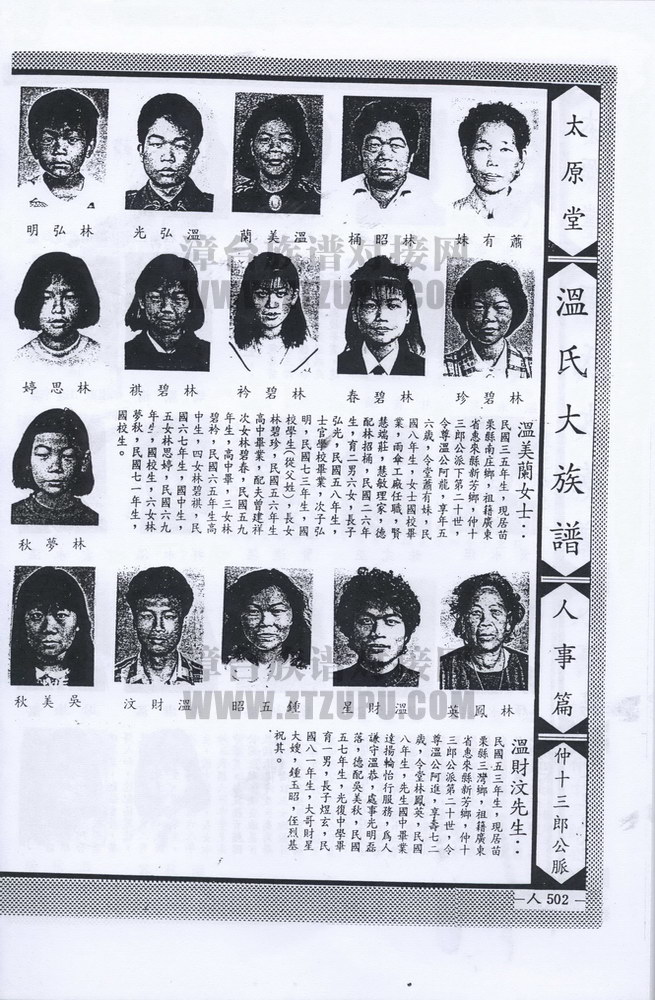 太原堂
溫氏大族譜
人事篇
仲十三郎公脈
蕭有妹
林昭桶
溫美蘭
溫弘光
林弘明
林碧珍
林碧春
林碧衿
林碧祺
林思婷
林夢秋
溫美蘭女士：
民國三五年生，現居苗
栗縣南庄鄉，祖籍廣東
省惠來縣新芳鄉，仲十
三郎公派下第二十世，
令尊溫公阿龍，享年五
六歲，令堂蕭有妹，民
國八年生，女士國校畢
業，雨傘工廠任職，賢
慧端莊，慧敏理家，德
配林招桶，民國二六年
生，育二男六女，長子
弘光，民國五八年生，
士官學校畢業，次子弘
明，民國七三年生，國
校學生(從父姓)，長女
林碧珍，民國五六年生
高中畢業，配夫曾建祥
次女林碧春，民國五九
年生，高中畢，三女林
碧衿，民國六五年生高
中生，四女林碧祺，民
國六七年生，國中生，
五女林思婷，民國六九
年生，國校生，六女林
夢秋，民國七一年生，
國校生。
林鳳英
溫財星
鍾五昭
溫財汶
吳美秋
溫財汶先生：
民國五三年生，現居苗
栗縣三灣鄉，祖籍廣東
省惠來縣新芳鄉，仲十
三郎公派第二十世，令
尊溫公阿進，享壽七二
歲，令堂林鳳英，民國
八年生，先生國中畢業
達揚輪怡行服務，為人
謙守溫恭，處事光明磊
落，德配吳美秋，民國
五七年生，光復中學畢
育一男，長子煜玄，民
國八一年生，大哥財星
大嫂，鍾玉昭，侄烈基
祝其。
人 502
漳台族谱对接网
WWW.ZTZUPU.COM
漳台族谱对接网
WWW.ZTZUPU.COM